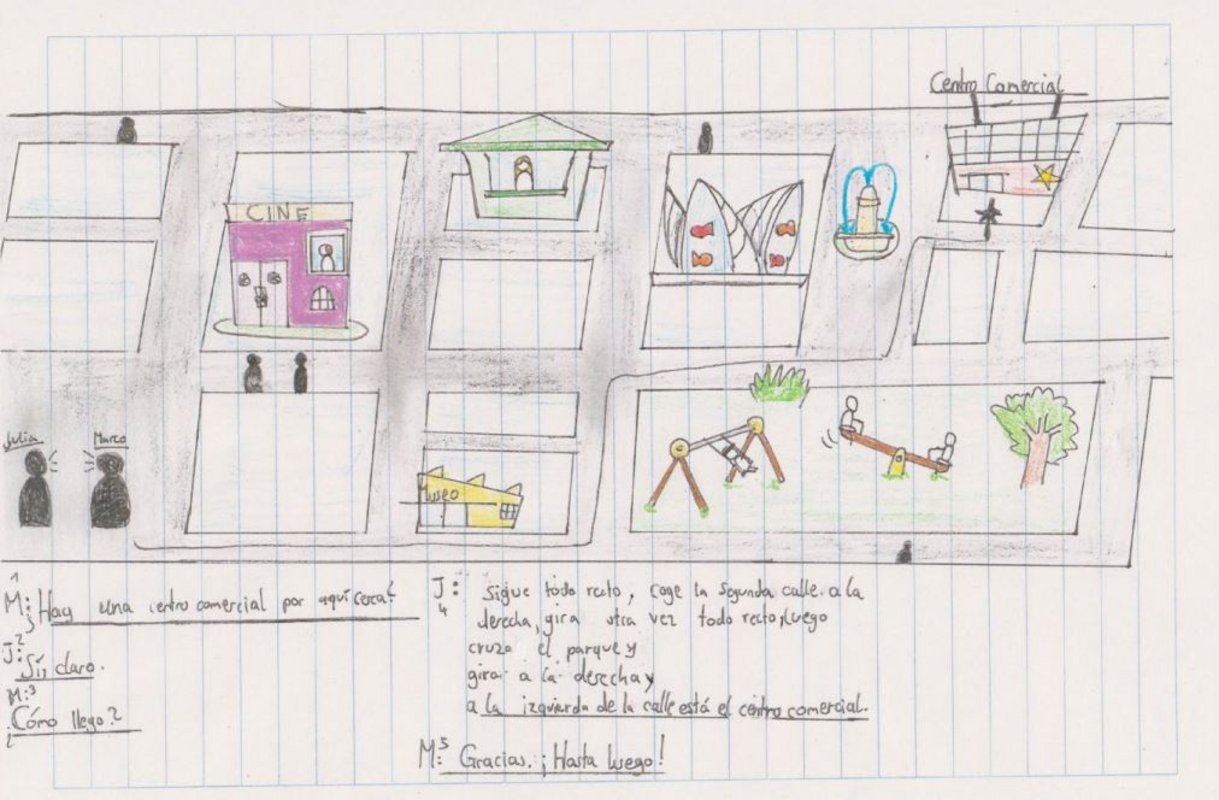 Centro Comercial
CINE
Julia
Marco
Museo
M:¹ ¿Hay una centro comercial por aquí cerca?
J:² Sí, claro.
M:³
¿Cómo llego?
J:⁴ Sigue todo recto, coge la segunda calle a la
derecha, gira otra vez todo recto, luego
cruza el parque y
gira a la derecha y
a la izquierda de la calle está el centro comercial.
M:⁵ Gracias. ¡Hasta luego!